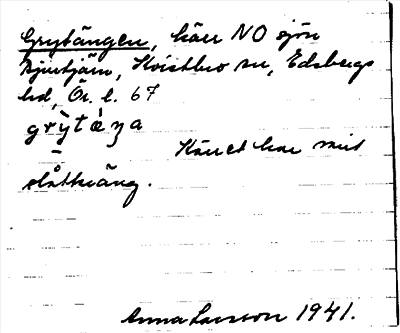 Grytängen, kärr NO sjön
Bjurtjärn, Kvistbro sn, Edsbergs
hd, Ör. l. 67
grỳtæ̀ŋa
Kärret har varit
slåtteräng.
Anna Larsson 1941.